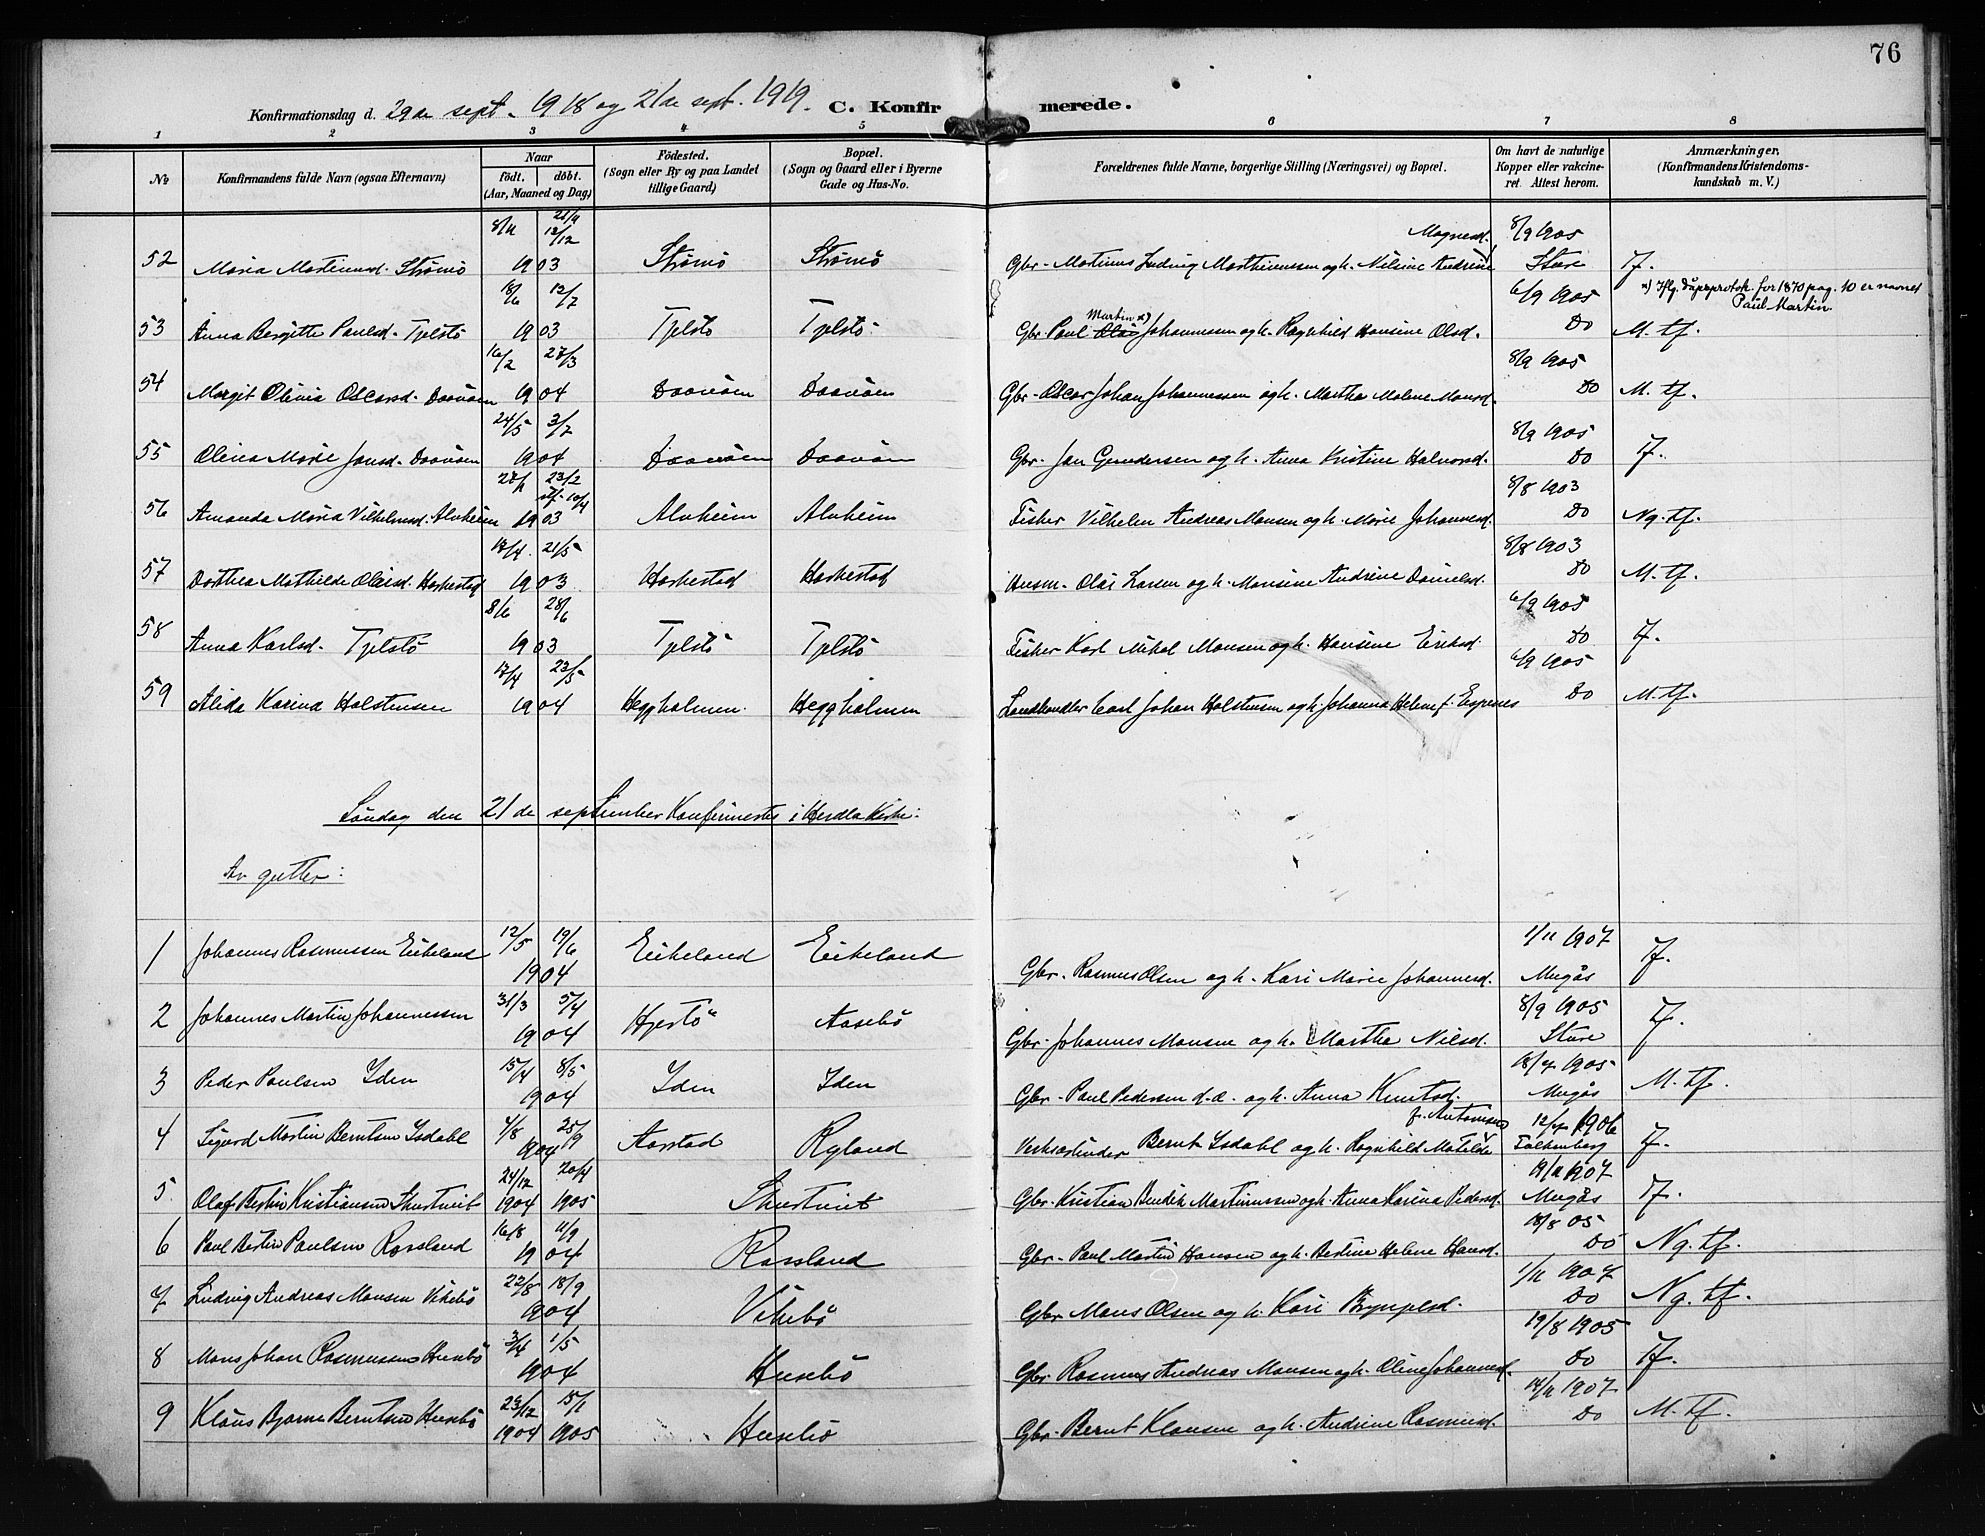 76
Konfirmationsdag d. 29de sept. 1918 og 21de sept. 1919. C. Konfirmerede.
1 2 3 4 5 6 7 8
№ Konfirmandens fulde Navn (ogsaa Efternavn) Naar födt. döbt. (Aar, Maaned og Dag) Födested. (Sogn eller By og paa Landet tillige Gaard) Bopæl. (Sogn og Gaard eller i Byerne Gade og Hus-No. Forældrenes fulde Navne, borgerlige Stilling (Næringsvei) og Bopæl. Om havt de naturlige Kopper eller vakcineret. Attest herom. Anmærkninger, (Konfirmandens Kristendomskundskab m. V.)
8/11 21/9 13/12 Mognesd. 8/9 1905
52 Maria Martinusd. Strømö 1903 Strømö Strømö Gbr. Martinus Ludvig Marthinussen og h. Nilsine Andrine Sture Tf.
18/6 12/7 6/9 1905 x) Iflg. dåpsprotok. for 1870 pag. 10 er navnet Paul Martin.
53 Anna Bergitte Paulsd. Tjelstö 1903 Tjelstö Tjelstö Gbr. Paul Martin x) Johannessen og h. Ragnhild Hansine Olsd. Do M. tf.
16/2 27/3 8/9 1905
54 Margit Olivia Oscarsd. Daavöen 1904 Daavöen Daavöen Gbr. Oscar Johan Johannessen og h. Martha Malene Monsd. Do M. tf.
24/5 3/7 8/9 1905
55 Olina Marie Jansd. Daavöen 1904 Daavöen Daavöen Gbr. Jan Gundersen og h. Anna Kristine Halvorsd. Do Tf.
27/1 23/2 10/4 8/8 1903
56 Amanda Maria Vilhelmsd. Alvheim 1903 Alvheim Alvheim Fisker Vilhelm Andreas Monsen og h. Marie Johannesd. Do Ng. tf.
17/4 21/5 8/8 1903
57 Dorthea Mathilde Olaisd. Harkestad 1903 Harkestad Harkestad Husm. Olai Larsen og h. Monsine Andrine Danielsd. Do M. tf.
8/6 28/6 6/9 1905
58 Anna Karlsd. Tjelstö 1903 Tjelstö Tjelstö Fisker Karl Mikal Monsen og h. Hansine Eriksd. Do Tf.
17/4 23/5 6/9 1905
59 Alida Karina Holstensen 1904 Heggholmen. Heggholmen Landhandler Carl Johan Holstensen og h. Johanna Helene f. Espenes Do M. tf.
Søndag den 21de september Konfirmertes i Herdla Kirke:
Av gutter:
12/5 19/6 1/11 1907
1 Johannes Rasmussen Eikeland 1904 Eikeland Eikeland Gbr. Rasmus Olsen og h. Kari Marie Johannesd. Mugås Tf.
31/3 5/4 8/9 1905
2 Johannes Martin Johannessen 1904 Hjertö Aasebö Gbr. Johannes Monsen og h. Martha Nilsd. Sture Tf.
15/4 8/5 1905
3 Peder Paulsen Iden 1904 Iden Iden Gbr. Paul Pedersen d.æ. og h. Anna Knutsd. Mugås M. tf.
4/8 25/9 f. Antonisen 1906
4 Sigurd Martin Berntsen Isdahl 1904 Aarstad Ryland Verksarbeider Bernt Isdahl og h. Ragnhild Matilde Falkenberg Tf.
24/12 20/4 1907
5. Olaf Bertin Kristiansen Skurtveit 1904 1905 Skurtveit Gbr. Kristian Bendik Martinussen og h. Anna Karina Pedersd. Mugås Tf.
16/8 11/9 18/8 05
6 Paul Bertin Paulsen Rossland 1904 Rossland Gbr. Paul Martin Hansen og h. Bertine Helene Hansd. Do Ng. tf.
22/8 18/9 1/11 1907
7 Ludvig Andreas Monsen Vikebö 1904 Vikebö Gbr. Mons Olsen og h. Kari Brynjelsd. Do Ng. tf.
3/4 1/5 19/8 1905
8 Mons Johan Rasmussen Husebö 1904 Husebö Gbr. Rasmus Andreas Monsen og h. Oline Johannesd. Do Tf.
23/12 15/1 14/11 1907
9 Klaus Bjarne Berntsen Husebö 1904 1905 Husebö Gbr. Bernt Klausen og h. Andrine Rasmusd. Do M. tf.